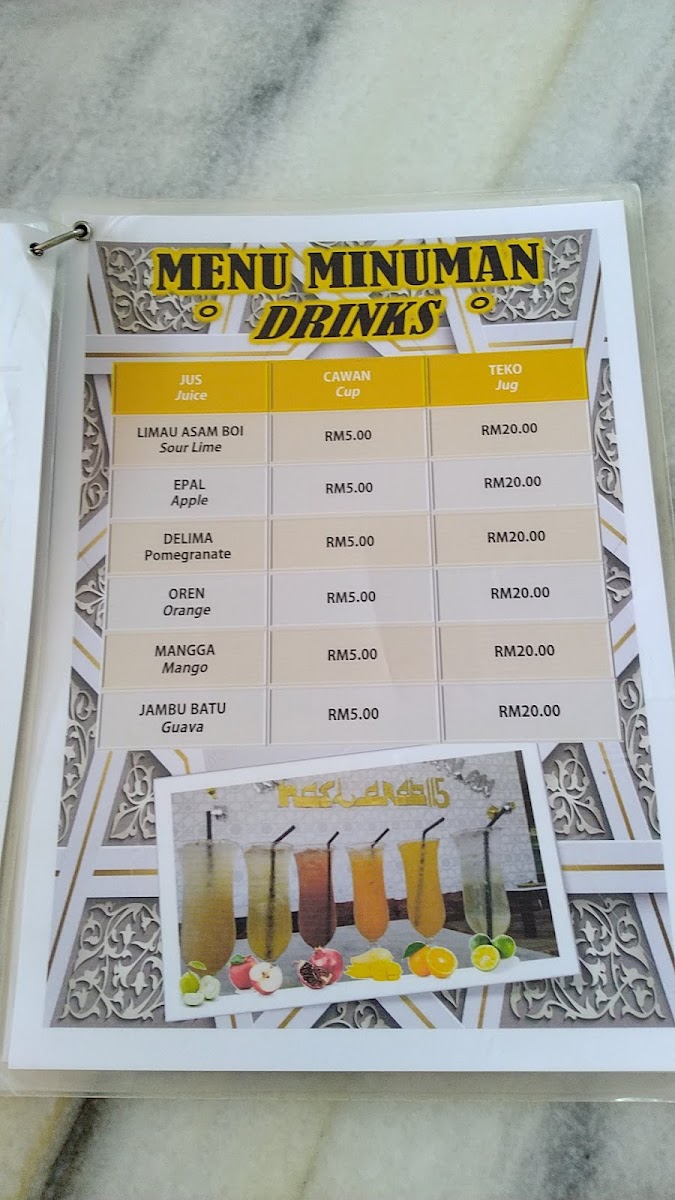 MENU MINUMAN
DRINKS
JUS
Juice
CAWAN
Cup
TEKO
Jug
LIMAU ASAM BOI
Sour Lime
RM5.00
RM20.00
EPAL
Apple
RM5.00
RM20.00
DELIMA
Pomegranate
RM5.00
RM20.00
OREN
Orange
RM5.00
RM20.00
MANGGA
Mango
RM5.00
RM20.00
JAMBU BATU
Guava
RM5.00
RM20.00